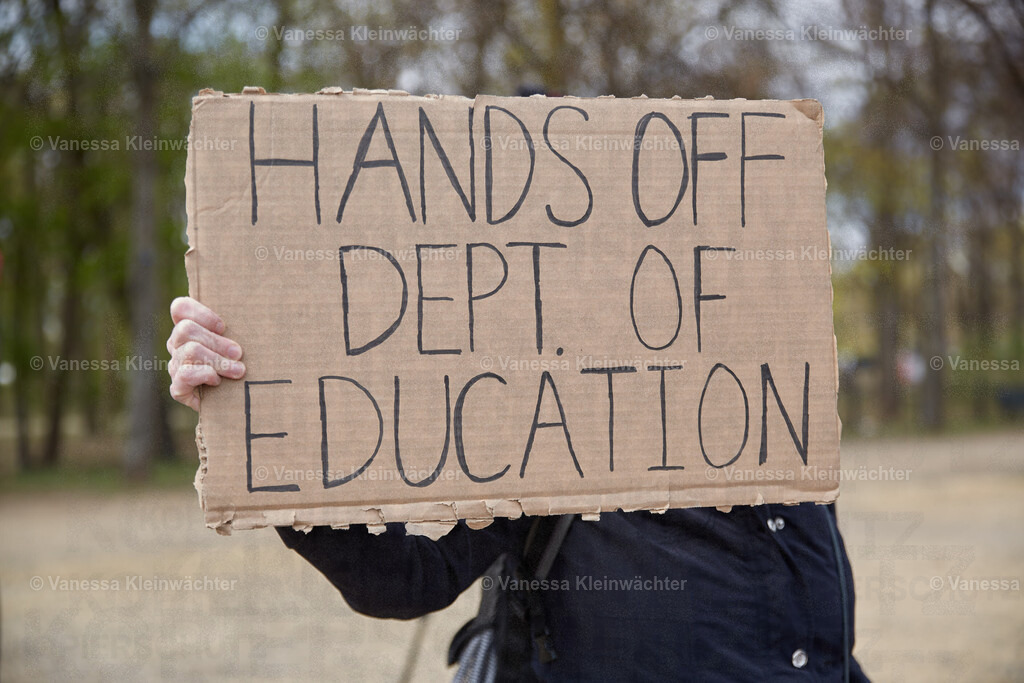 © Vanessa Kleinwächter © Vanessa Kleinwächter
HANDS OFF
© Vanessa Kleinwächter © Vanessa Kleinwächter © Vanessa
DEPT. OF
© Vanessa Kleinwächter © Vanessa Kleinwächter
© Vanessa Kleinwächter © Vanessa Kleinwächter © Vanessa
EDUCATION
© Vanessa Kleinwächter © Vanessa Kleinwächter
© Vanessa Kleinwächter © Vanessa Kleinwächter © Vanessa